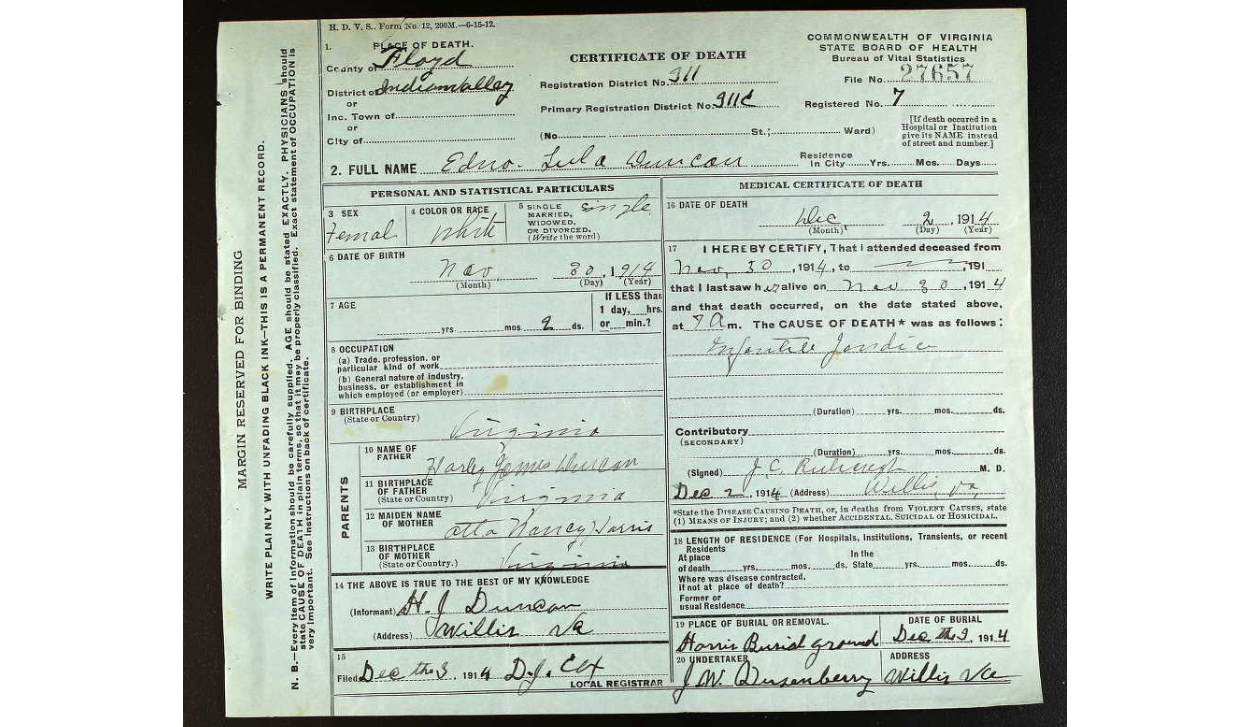 H. D. V. S. Form No. 12, 200M.—6-15-12.
1. PLACE OF DEATH.
County of Floyd
District of Indian Valley
or
Inc. Town of
or
City of
CERTIFICATE OF DEATH
Registration District No. 311
Primary Registration District No. 311C
(No. St.; Ward)
COMMONWEALTH OF VIRGINIA
STATE BOARD OF HEALTH
Bureau of Vital Statistics
File No. 27657
Registered No. 7
[If death occured in a
Hospital or Institution
give its NAME instead
of street and number.]
2. FULL NAME Edna Lula Duncan
Residence
In City Yrs. Mos. Days
PERSONAL AND STATISTICAL PARTICULARS
3 SEX
Femal
4 COLOR OR RACE
White
5 SINGLE
MARRIED,
WIDOWED,
OR DIVORCED.
(Write the word)
Single
6 DATE OF BIRTH
Nov. 30, 1914
(Month) (Day) (Year)
7 AGE
yrs. mos. 2 ds.
If LESS than
1 day, hrs.
or min.?
8 OCCUPATION
(a) Trade, profession, or
particular kind of work
(b) General nature of industry,
business, or establishment in
which employed (or employer)
9 BIRTHPLACE
(State or Country)
Virginia
PARENTS
10 NAME OF
FATHER
Harley James Duncan
11 BIRTHPLACE
OF FATHER
(State or Country)
Virginia
12 MAIDEN NAME
OF MOTHER
Otta Nancy Harris
13 BIRTHPLACE
OF MOTHER
(State or Country.)
Virginia
14 THE ABOVE IS TRUE TO THE BEST OF MY KNOWLEDGE
(Informant) H. J Duncan
(Address) Willis Va
15
Filed Dec the 3, 1914 D. J. Cox
LOCAL REGISTRAR
MEDICAL CERTIFICATE OF DEATH
16 DATE OF DEATH
Dec 2, 1914
(Month) (Day) (Year)
17 I HEREBY CERTIFY, That I attended deceased from
Nov, 30, 1914, to , 191
that I last saw her alive on Nov 30, 1914
and that death occurred, on the date stated above,
at 7 A m. The CAUSE OF DEATH* was as follows:
Infantile Jondice
(Duration) yrs. mos. ds.
Contributory
(SECONDARY)
(Duration) yrs. mos. ds.
(Signed) J. C. M. D.
Dec 2, 1914 (Address) Willis, Va,
*State the DISEASE CAUSING DEATH, or, in deaths from VIOLENT CAUSES, state
(1) MEANS OF INJURY; and (2) whether ACCIDENTAL, SUICIDAL or HOMICIDAL.
18 LENGTH OF RESIDENCE (For Hospitals, Institutions, Transients, or recent
Residents
At place In the
of death yrs. mos. ds. State yrs. mos. ds.
Where was disease contracted.
if not at place of death?
Former or
usual Residence
19 PLACE OF BURIAL OR REMOVAL.
Harris Burial ground
DATE OF BURIAL
Dec the 3, 1914
20 UNDERTAKER
J. W. Dusenberry
ADDRESS
Willis Va
MARGIN RESERVED FOR BINDING
WRITE PLAINLY WITH UNFADING BLACK INK—THIS IS A PERMANENT RECORD.
N. B.—Every item of information should be carefully supplied. AGE should be stated EXACTLY. PHYSICIANS should
state CAUSE OF DEATH in plain terms, so that it may be properly classified. Exact statement of OCCUPATION is
very important. See instructions on back of certificate.